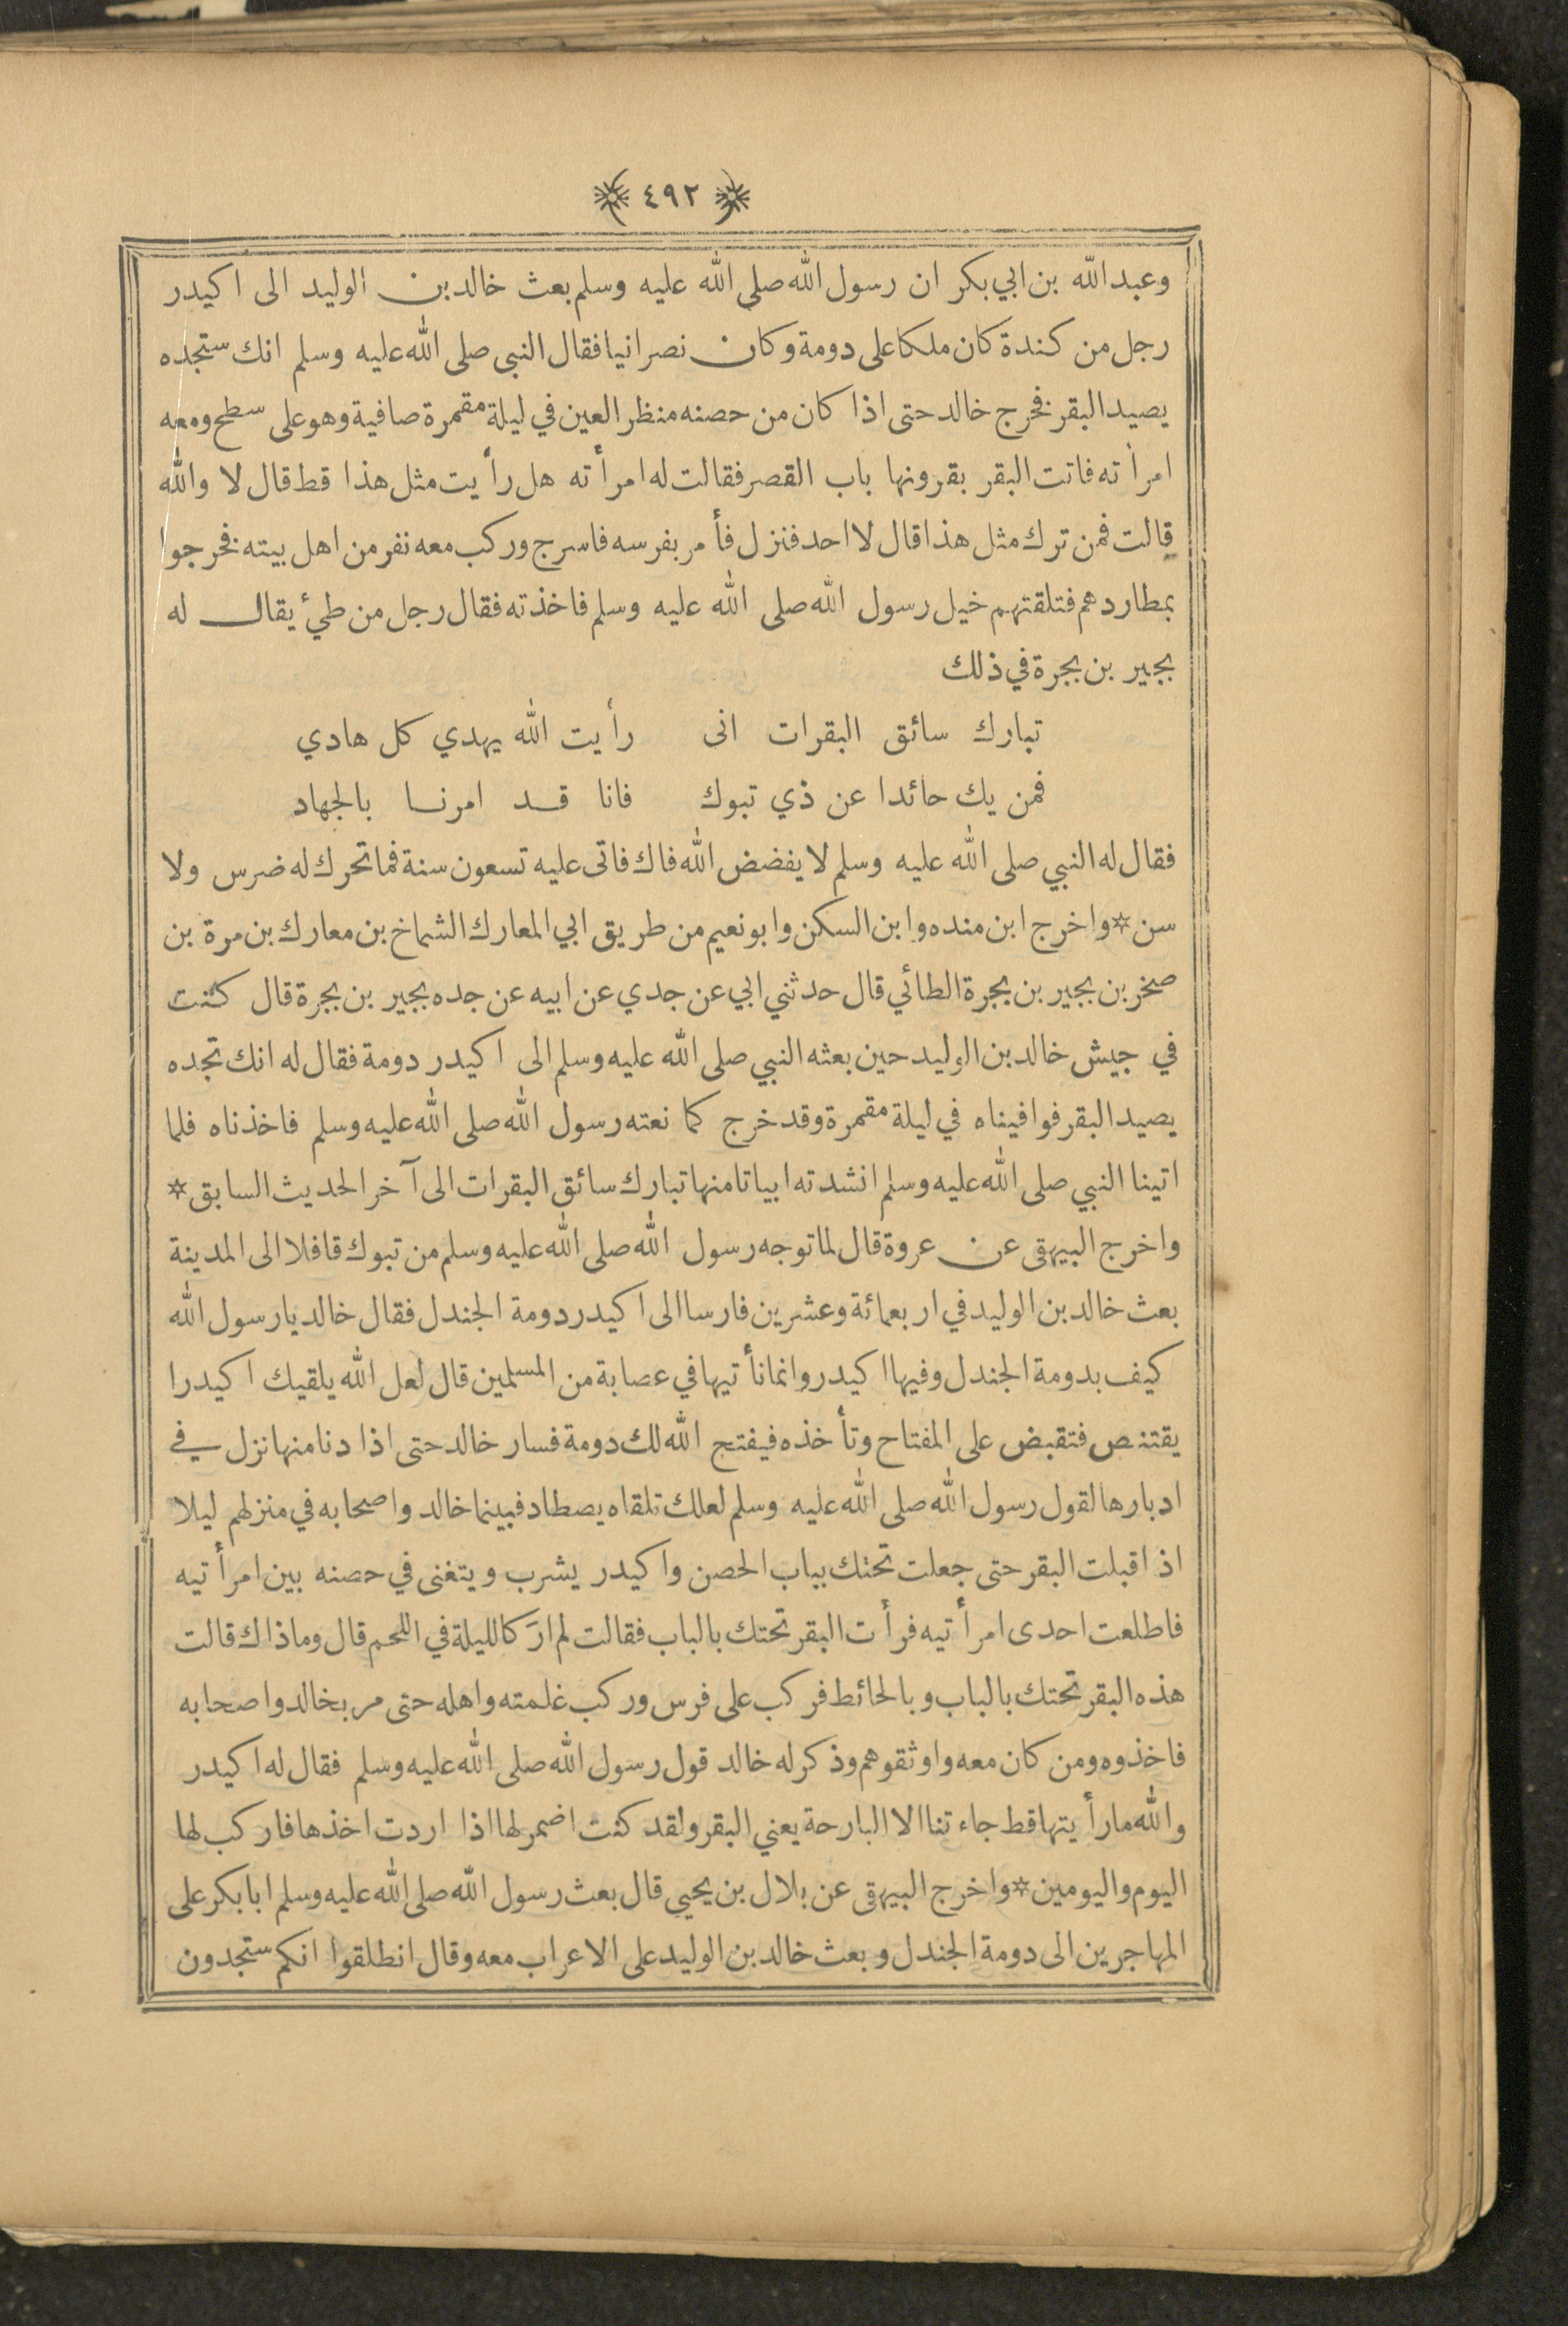 ٤٩٢
وعبدالله بن ابي بكر ان رسول الله صلى الله عليه وسلم بعث خالد بن الوليد الى اكيدر
رجل من كندة كان ملكا على دومة وكان نصرانيا فقال النبى صلى الله عليه وسلم انك ستجده
يصيد البقر فخرج خالد حتى اذا كان من حصنه منظر العين في ليلة مقمرة صافية وهو على سطح ومعه
امرأته فاتت البقر بقرونها باب القصر فقالت له امرأته هل رأيت مثل هذا قط قال لا والله
قالت فمن ترك مثل هذا قال لا احد فنزل فأمر بفرسه فاسرج وركب معه نفر من اهل بيته فخرجوا
بمطاردهم فتلقتهم خيل رسول الله صلى الله عليه وسلم فاخذته فقال رجل من طئ يقال له
بجير بن بجرة في ذلك
تبارك سائق البقرات انى رأيت الله يهدي كل هادي
فمن يك حائدا عن ذي تبوك فانا قد امرنا بالجهاد
فقال له النبي صلى الله عليه وسلم لا يفضض الله فاك فاتى عليه تسعون سنة فما تحرك له ضرس ولا
سن * واخرج ابن منده وابن السكن وابو نعيم من طريق ابي المعارك الشماخ بن معارك بن مرة بن
صخر بن بجير بن بجرة الطائي قال حدثني ابي عن جدي عن ابيه عن جده بجير بن بجرة قال كنت
في جيش خالد بن الوليد حين بعثه النبي صلى الله عليه وسلم الى اكيدر دومة فقال له انك تجده
يصيد البقر فوافيناه في ليلة مقمرة وقد خرج كما نعته رسول الله صلى الله عليه وسلم فاخذناه فلما
اتينا النبي صلى الله عليه وسلم انشدته ابياتا منها تبارك سائق البقرات الى آخر الحديث السابق *
واخرج البيهقى عن عروة قال لما توجه رسول الله صلى الله عليه وسلم من تبوك قافلا الى المدينة
بعث خالد بن الوليد في اربعمائة وعشرين فارسا الى اكيدر دومة الجندل فقال خالد يا رسول الله
كيف بدومة الجندل وفيها اكيدر وانما نأتيها في عصابة من المسلمين قال لعل الله يلقيك اكيدرا
يقتنص فتقبض على المفتاح وتأخذه فيفتح الله لك دومة فسار خالد حتى اذا دنا منها نزل في
ادبارها لقول رسول الله صلى الله عليه وسلم لعلك تلقاه يصطاد فبينما خالد واصحابه في منزلهم ليلا
اذ اقبلت البقر حتى جعلت تحتك بباب الحصن واكيدر يشرب ويتغنى في حصنه بين امرأتيه
فاطلعت احدى امرأتيه فرأت البقر تحتك بالباب فقالت لم ارَ كالليلة في اللحم قال وما ذاك قالت
هذه البقر تحتك بالباب وبالحائط فركب على فرس وركب غلمته واهله حتى مر بخالد واصحابه
فاخذوه ومن كان معه واوثقوهم وذكر له خالد قول رسول الله صلى الله عليه وسلم فقال له اكيدر
والله ما رأيتها قط جاءتنا الا البارحة يعني البقر ولقد كنت اضمر لها اذا اردت اخذها فاركب لها
اليوم واليومين * واخرج البيهقى عن بلال بن يحيى قال بعث رسول الله صلى الله عليه وسلم ابا بكر على
المهاجرين الى دومة الجندل وبعث خالد بن الوليد على الاعراب معه وقال انطلقوا انكم ستجدون